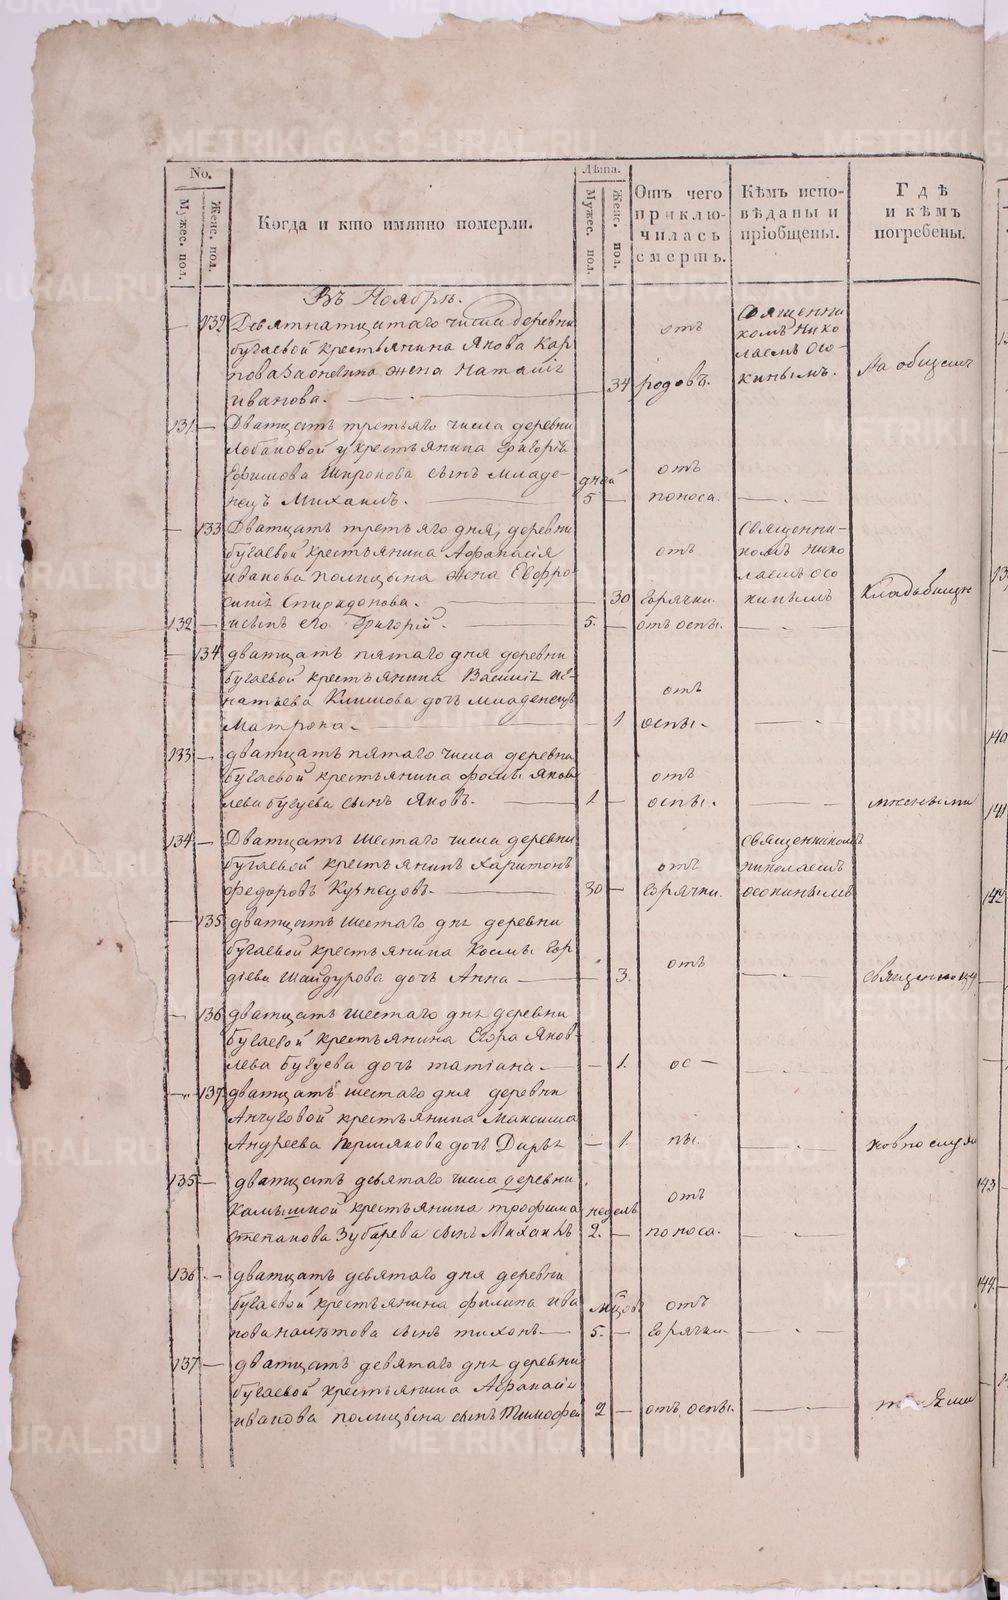 No.
Мужес. пол.
Женс. пол.
Когда и кто имянно померли.
Лѣта.
Мужес. пол.
Женс. пол.
Отъ чего приклю-
чилась смерть.
Кѣмъ испо-
вѣданы и
пріобщены.
Гдѣ
и кѣмъ
погребены.
Въ Ноябрѣ.
132 Девятнатцатаго числа деревни
бугаевой крестьянина Якова Кар
пова жена Наталія
иванова. 34 отъ родовъ. Священни
комъ Нико
лаемъ Осо-
кинымъ. На общемъ
131 Дватцать третьяго числа деревни
Лобановой у крестьянина Григорія
Ефимова Широкова сынъ младе-
нецъ Михаилъ. дней 5 отъ поноса.
133 Дватцать третьяго дня, деревни
бугаевой крестьянина Афанасія
иванова полицына жена Евфро
синія Спиридонова. 30 отъ горячки. Священни-
комъ Нико
лаемъ Осо
кинымъ кладбищѣ
132 и сынъ его Григорій. 5. отъ оспы.
134 дватцать пятаго дня деревни
бугаевой крестьянина Василія иг-
натьева Климова дочь младенецъ
Матрона. 1 отъ оспы.
133 дватцать пятаго числа деревни
бугаевой крестьянина фомы яков
лева бугуева сынъ Яковъ. 1 отъ оспы.
134 Дватцать шестаго числа деревни
бугаевой крестьянинъ харитонъ
федоровъ Кузнецовъ. 30 отъ горячки. священникомъ
николаемъ
осокинымъ
135 дватцать шестаго дня деревни
бугаевой крестьянина Космы Гор
дѣева Шайдурова дочь Анна 3. отъ
136 дватцать шестаго дня деревни
бугаевой крестьянина Егора Яков-
лева бугуева дочь татіана. 1. ос-
137 дватцать шестаго дня деревни
Анчуговой крестьянина Максима
Андреева Пермякова дочь Дарья 1. пы.
135 дватцать девятаго числа деревни
Камышной крестьянина трофима
степанова Зубарева сынъ Михаилъ недель 2. отъ поноса.
136 дватцать девятаго дня деревни
бугаевой крестьянина филипа ива
нова сынъ тихонъ 5. отъ горячки
137 дватцать девятаго дня деревни
бугаевой крестьянина Афанасія
иванова полицына сынъ Тимофей 2 отъ оспы.